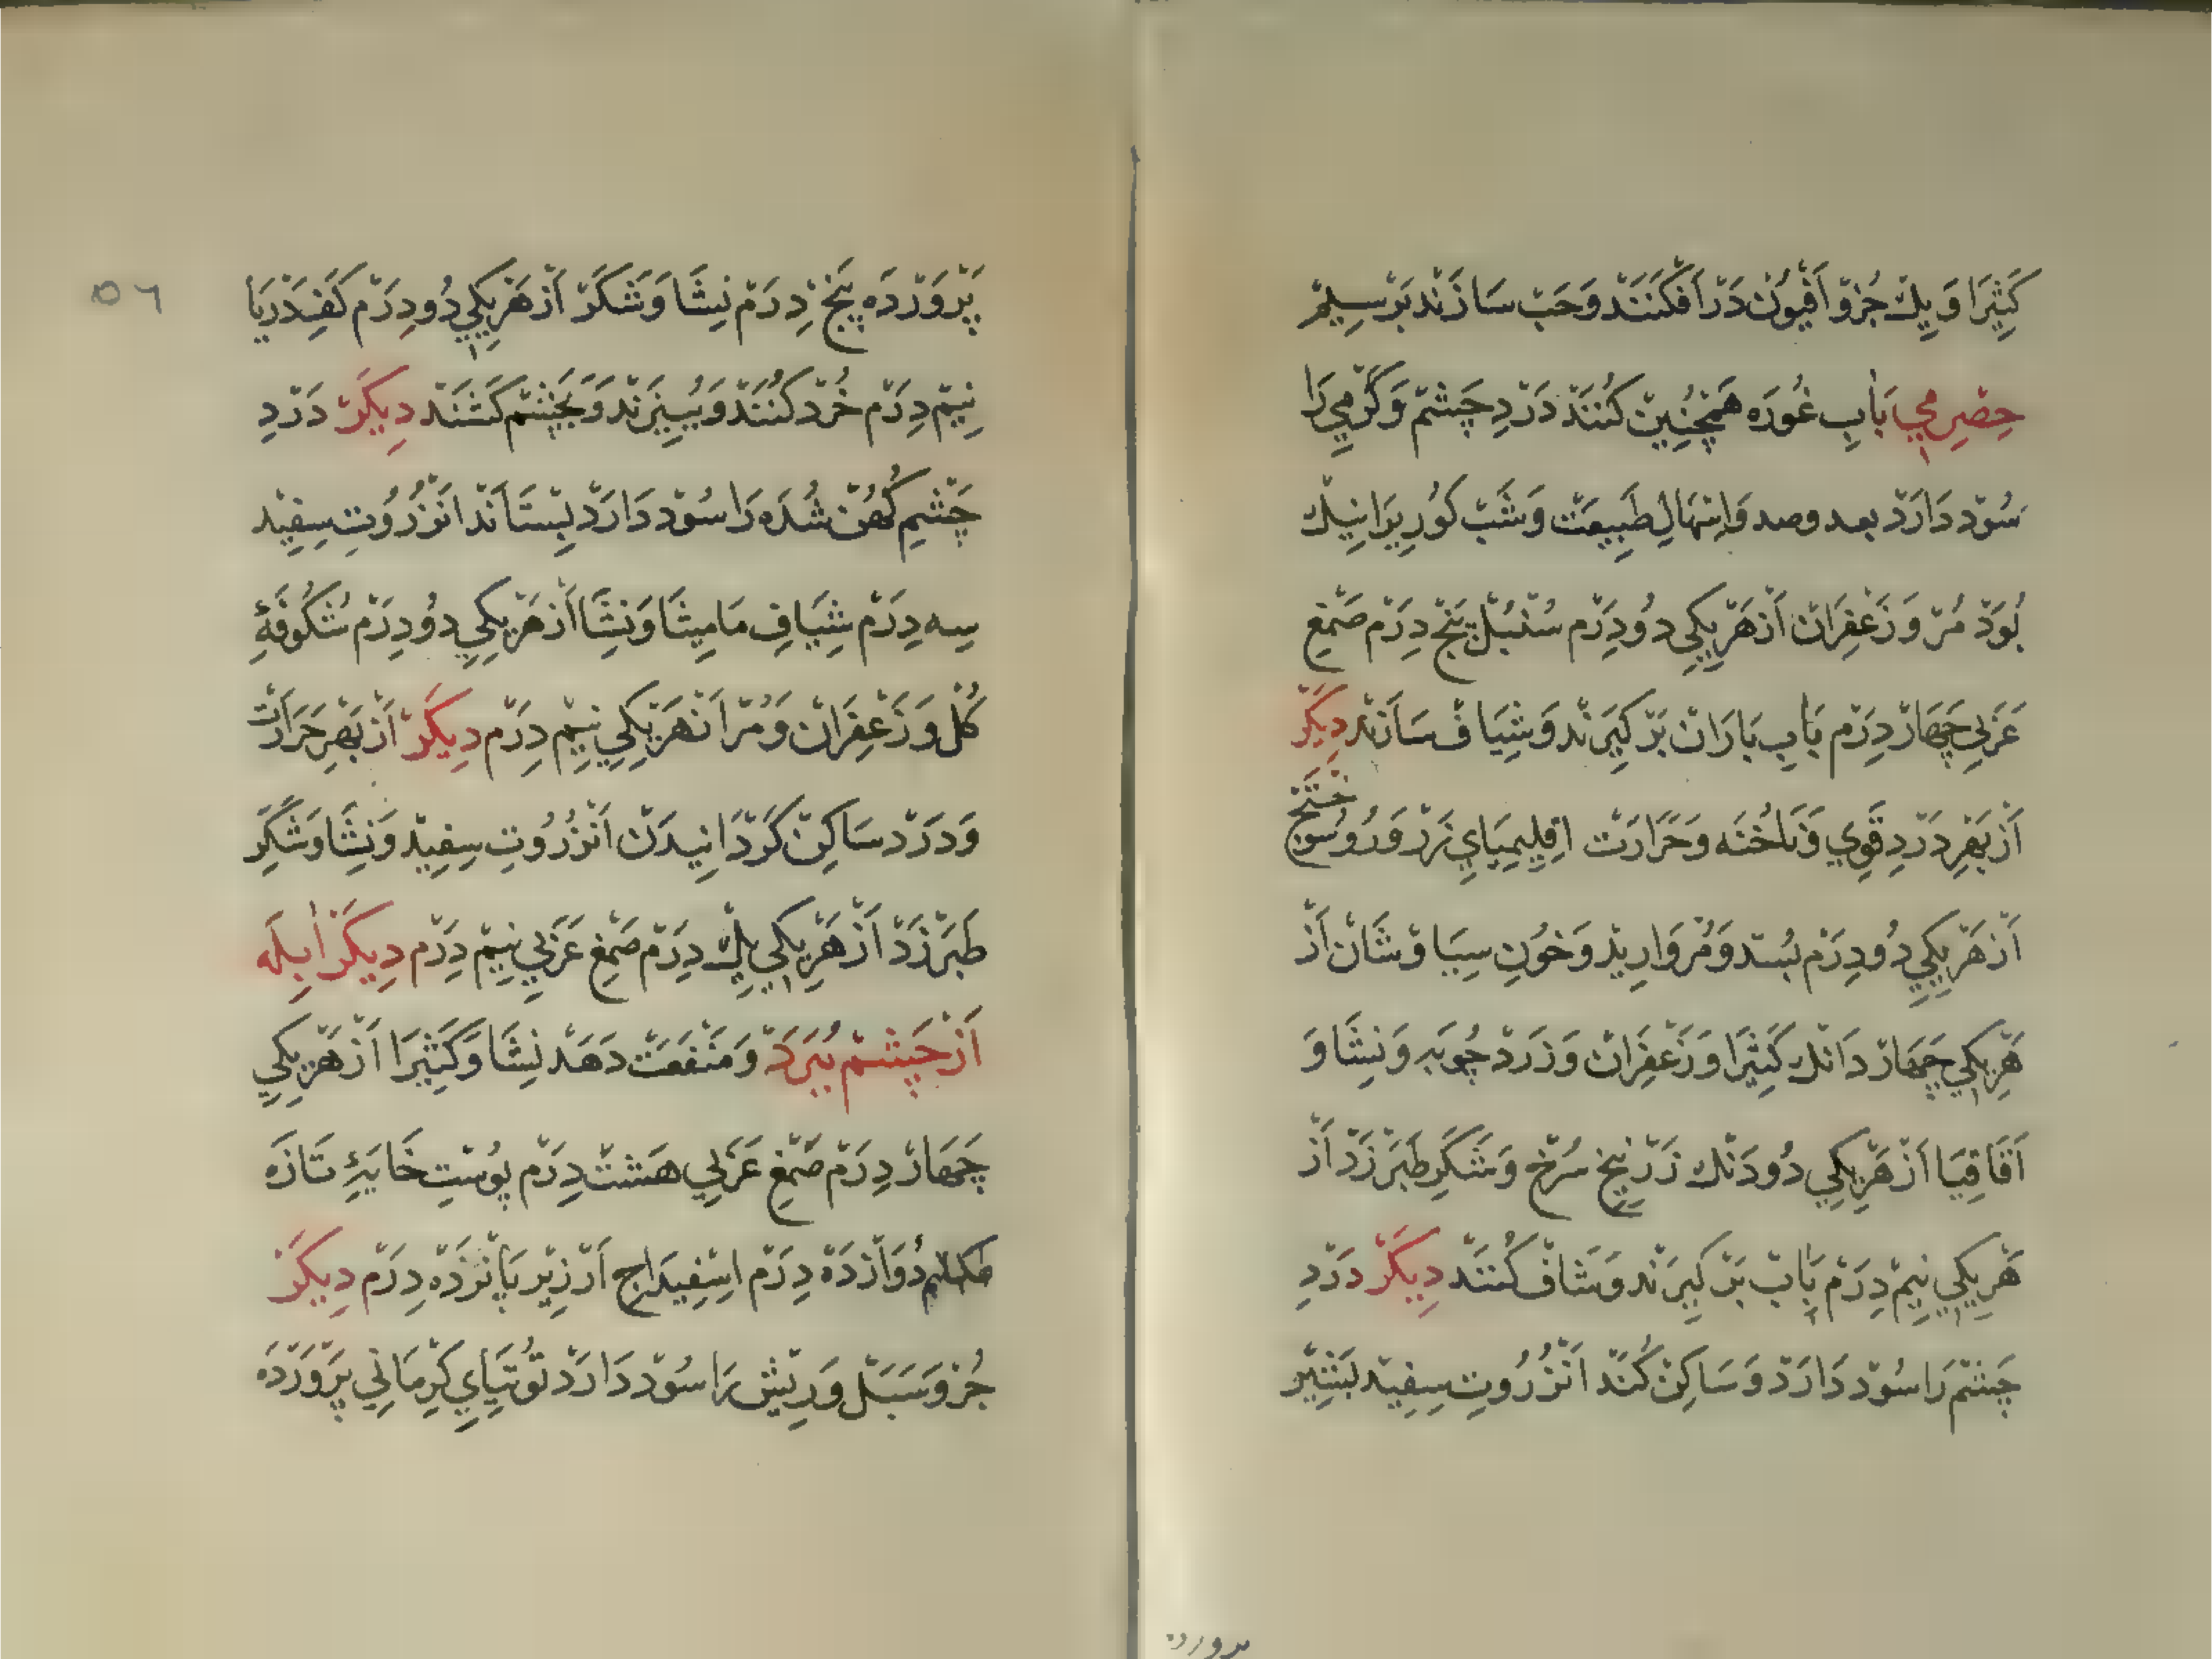 كَثِيرَا وَ يِكْ جُزْوْ اَفْيُونْ دَرْ اَفْكَنَنْد وَحَبّ سَازَنْد بَرْ سِيمْ
حِصْرِمِي بَابِ غُورَه هَمْچُنِينْ كُنَنْد دَرْدِ چَشْمْ وَ گَرْمِي رَا
سُوْد دَارَدْ بعد وصد وَاِسْهَالِ طَبِيعَتْ وَشَبْ كُورِيرَا نِيكْ
بُوَدْ مُرّ وَ زَعْفِرَانْ اَزْهَرْيِكِي دُو دِرَمْ سُنْبُلْ پَنْج دِرَمْ صَمْغِ
عَرَبِي چَهَارْ دِرَمْ بَابِ بَارَانْ بَرْ كِيرَنْد وَشِيَافْ سَازَنْد دِيكَرْ
اَزْ بَهْرِ دَرْدِ قَوِي وَنَاخُنَه وَحَرَارَتْ اقْلِيمِيَايِ زَرْد وَرُوسُوخْتَجْ
اَزْهَرْيِكِي دُو دِرَمْ بُسَد وَمُرْوَارِيدْ وَخُونِ سِيَاوْشَانْ اَزْ
هَرْيِكِي چَهَارْ دَانْك كَثِيرَا وَزَعْفِرَانْ وَ زَرْدْ چُوبَه وَنِشَا وَ
اَقَاقِيَا اَزْهَرْيِكِي دُو دَنْك زَرْنِيخِ سُرْخ وَشَكَرِ طَبَرْزَدْ اَزْ
هَرْيِكِي نِيمْ دِرَمْ بَابْ بَرْ كِيرَنْد وَشَافْ كُنَنْد دِيكَرْ دَرْدِ
چَشْمْ رَا سُوْد دَارَدْ وَ سَاكِنْ كُنَدْ اَنْزُرُوتِ سِفِيدْ بَشِيرْ
بروره
٥٦
پَرْوَرْدَه پَنْجْ دِرَمْ نِشَا وَشَكَرْ اَزْهَرْيِكِي دُو دِرَمْ كَفِ دَرْيَا
نِيمْ دِرَمْ خُرْد كُنَنْد وَ بِبِيزَنْد وَ بَچَشْمْ كَشَنْد دِيكَرْ دَرْدِ
چَشْمِ كُهَنْ شُدَه رَا سُوْد دَارَدْ بِسْتَانَدْ اَنْزُرُوتِ سِفِيد
سِه دِرَمْ شِيَافِ مَامِيثَا وَنِشَا اَزْهَرْيِكِي دُو دِرَمْ شُكُوفَهِٔ
گُلْ وَزَعْفِرَانْ وَمُرّ اَزْهَرْيِكِي نِيمْ دِرَمْ دِيكَرْ اَزْ بَهْرِ حَرَارَتْ
وَدَرْد سَاكِنْ گَرْدَانِيدَنْ اَنْزُرُوتِ سِفِيدْ وَنِشَا وَشَكَرِ
طَبَرْزَدْ اَزْهَرْيِكِي يِكْ دِرَمْ صَمْغِ عَرَبِي نِيمْ دِرَمْ دِيكَرْ اَبِلَه
اَزْ چَشْمْ بُبَرَدْ وَمَنْفَعَتْ دَهَدْ نِشَا وَكَثِيرَا اَزْهَرْيِكِي
چَهَارْ دِرَمْ صَمْغِ عَرَبِي هَشْتْ دِرَمْ پُوسْتِ خَايَهِٔ تَازَه
دُوَازْدَهْ دِرَمْ اِسْفِيدَاجِ اَرْزِيزْ پَانْزْدَهْ دِرَمْ دِيكَرْ
جُزْ وَ سَبَلْ وَ رِيْشْ رَا سُوْد دَارَدْ تُوتِيَايِ كِرْمَانِي پَرْوَرْدَه